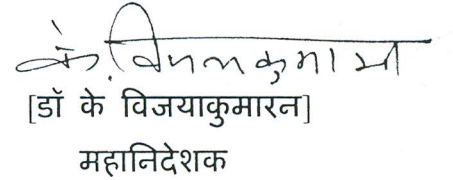 के. विजयकुमारन
[डॉ के विजयाकुमारन]
महानिदेशक